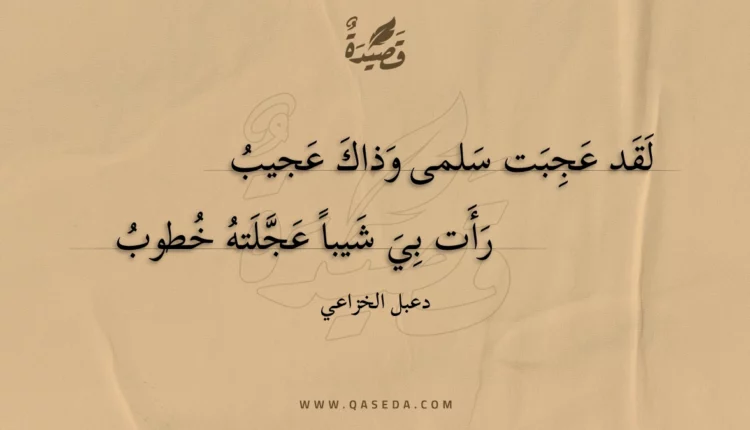 قَصِيدَةٌ
لَقَد عَجِبَت سَلمى وَذاكَ عَجيبُ
رَأَت بِيَ شَيباً عَجَّلَتهُ خُطوبُ
دعبل الخزاعي
WWW.QASEDA.COM